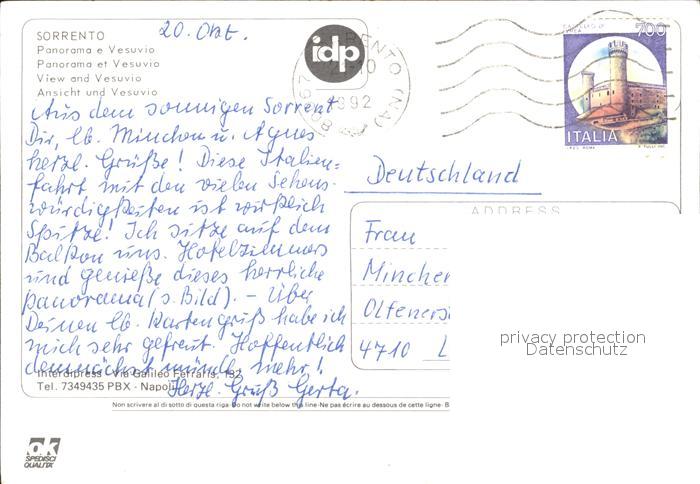 20. Okt.
SORRENTO
Panorama e Vesuvio
Panorama et Vesuvio
View and Vesuvio
Ansicht und Vesuvio
idp
1992
700
ITALIA
Aus dem sonnigen Sorrent
Dir, lb. Minchen u. Agnes
herzl. Grüße! Diese Italien=
fahrt mit den vielen Sehens-
würdigkeiten ist wirklich
Spitze! Ich sitze auf dem
Balkon uns. Hotelzimmers
und genieße dieses herrliche
Panorama (s. Bild). – Über
Deinen lb. Kartengruß habe ich
mich sehr gefreut. Hoffentlich
demnächst mündl. mehr!
Herzl. Gruß Gerta.
Interdipress - Via Galileo Ferraris, 192
Tel. 7349435 PBX - Napoli
Deutschland
ADDRESS
Frau
Minchen
4710 L
privacy protection
Datenschutz
Non scrivere al di sotto di questa riga - Do not write below this line - Ne pas écrire au dessous de cette ligne - B
ok
SPEDISCI
QUALITÀ